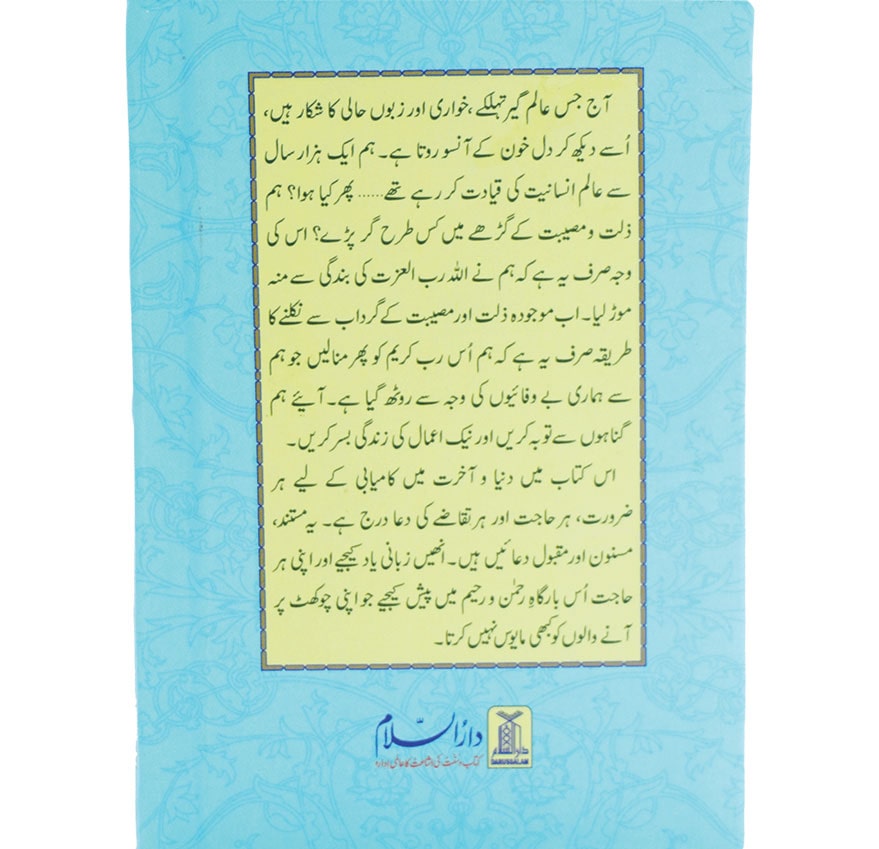 آج جس عالم گیر تہلکے، خواری اور زبوں حالی کا شکار ہیں،
اُسے دیکھ کر دل خون کے آنسو روتا ہے۔ ہم ایک ہزار سال
سے عالم انسانیت کی قیادت کر رہے تھے...... پھر کیا ہوا؟ ہم
ذلت و مصیبت کے گڑھے میں کس طرح گر پڑے؟ اس کی
وجہ صرف یہ ہے کہ ہم نے اللہ رب العزت کی بندگی سے منہ
موڑ لیا۔ اب موجودہ ذلت اور مصیبت کے گرداب سے نکلنے کا
طریقہ صرف یہ ہے کہ ہم اُس رب کریم کو پھر منالیں جو ہم
سے ہماری بے وفائیوں کی وجہ سے روٹھ گیا ہے۔ آیئے ہم
گناہوں سے توبہ کریں اور نیک اعمال کی زندگی بسر کریں۔
اس کتاب میں دنیا و آخرت میں کامیابی کے لیے ہر
ضرورت، ہر حاجت اور ہر تقاضے کی دعا درج ہے۔ یہ مستند،
مسنون اور مقبول دعائیں ہیں۔ انھیں زبانی یاد کیجیے اور اپنی ہر
حاجت اُس بارگاہِ رحمٰن و رحیم میں پیش کیجیے جو اپنی چوکھٹ پر
آنے والوں کو کبھی مایوس نہیں کرتا۔
دارُالسّلام
کتاب و سنت کی اشاعت کا عالمی ادارہ
دارالسلام
DARUSSALAM